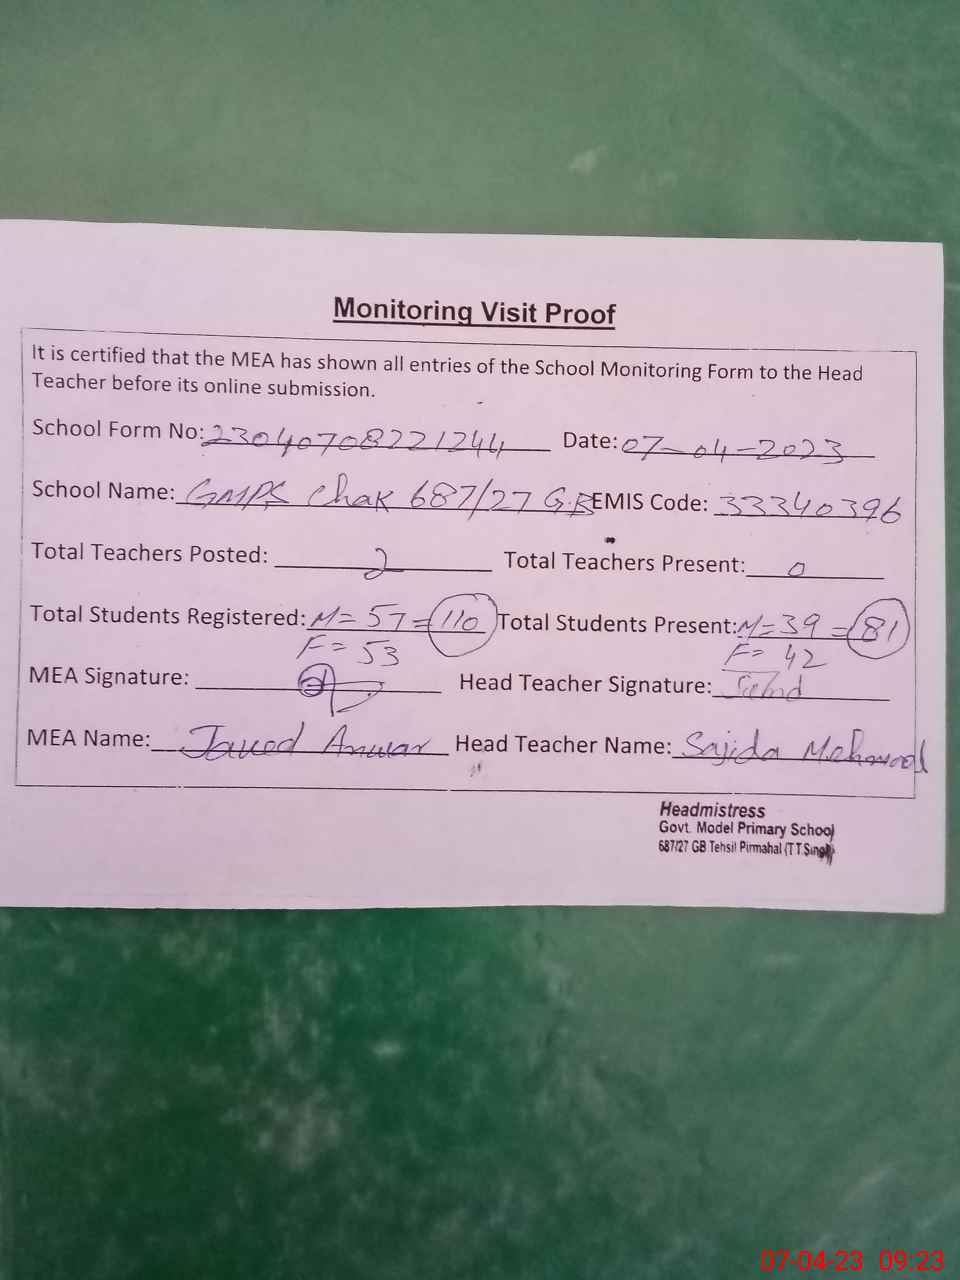 Monitoring Visit Proof
It is certified that the MEA has shown all entries of the School Monitoring Form to the Head
Teacher before its online submission.
School Form No: 23040708221244 Date: 07-04-2023
School Name: GMPS Chak 687/27 G.B EMIS Code: 33340396
Total Teachers Posted: 2 Total Teachers Present: 0
Total Students Registered: M=57=110 Total Students Present: M=39=81
F=53 F=42
MEA Signature: Head Teacher Signature:
MEA Name: Javed Anwar Head Teacher Name: Sajida Mehmood
Headmistress
Govt. Model Primary School
687/27 GB Tehsil Pirmahal (T.T.Singh)
07-04-23 09:23